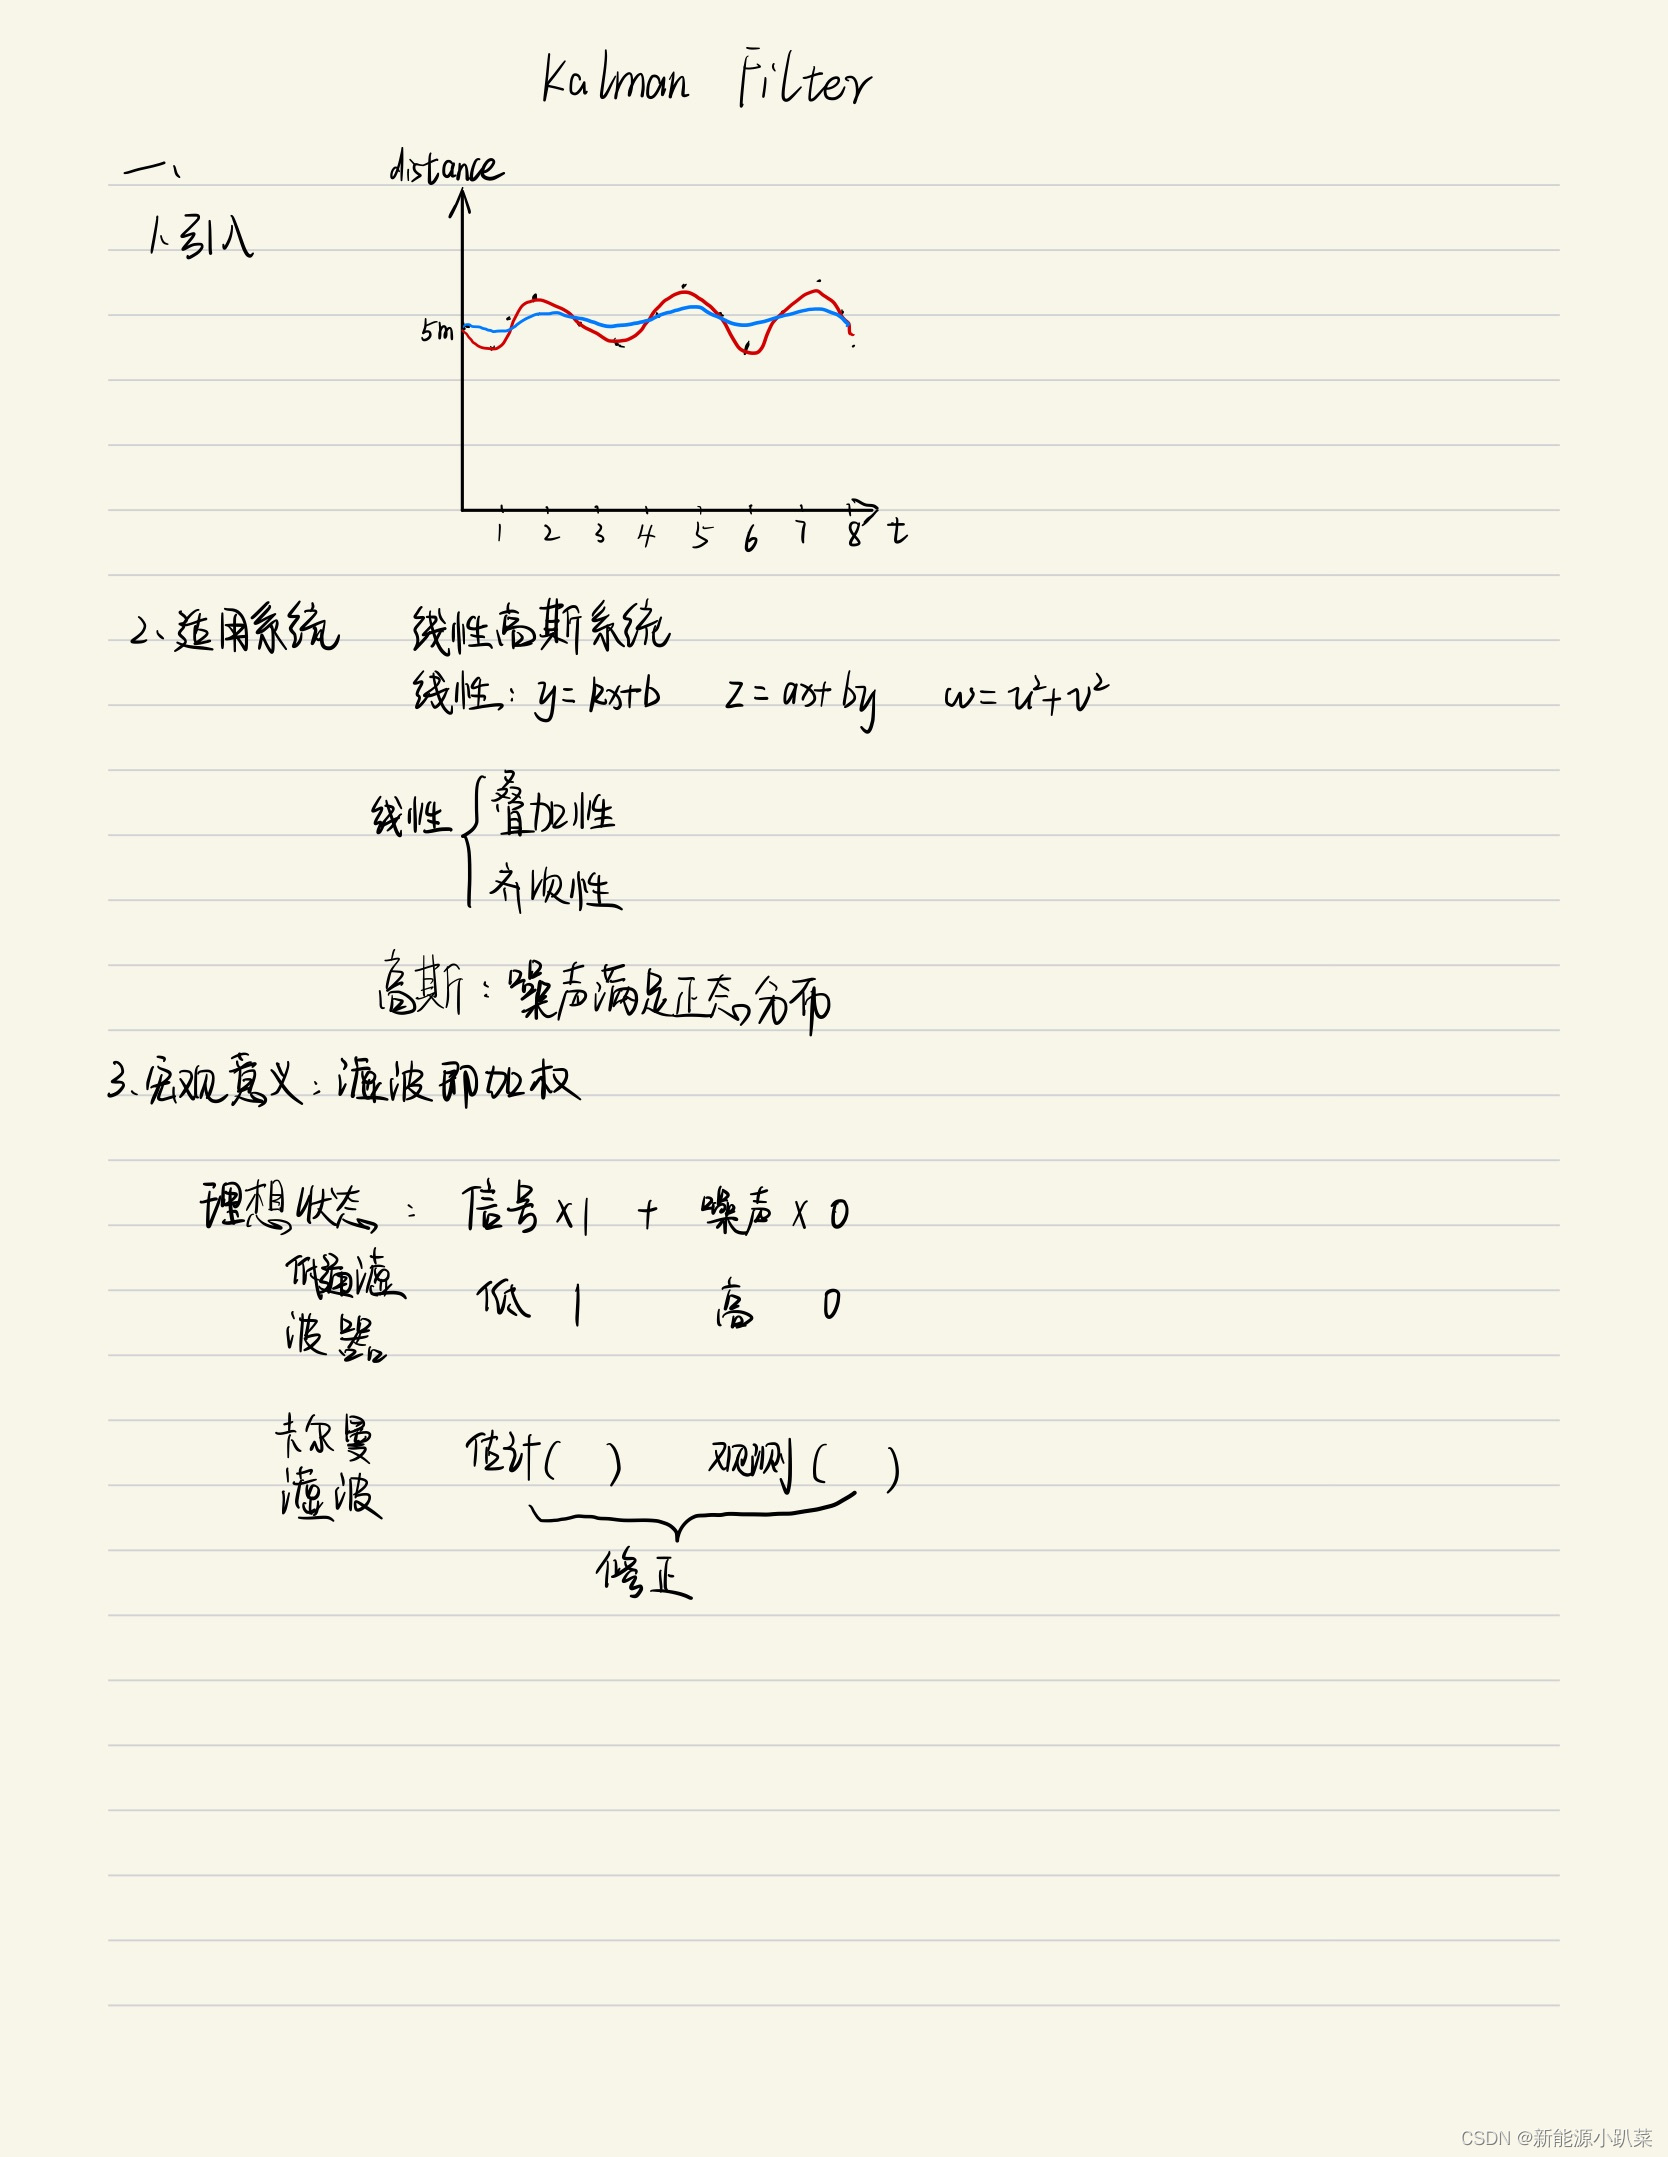 Kalman Filter
一、
distance
1、引入
5m
1 2 3 4 5 6 7 8 t
2、适用系统 线性高斯系统
线性: y=kx+b z=ax+by w=u²+v²
线性 { 叠加性
齐次性
高斯: 噪声满足正态分布
3、宏观意义: 滤波即加权
理想状态: 信号×1 + 噪声×0
低通滤
波器 低 1 高 0
卡尔曼
滤波 估计( ) 观测( )
修正
CSDN @新能源小趴菜